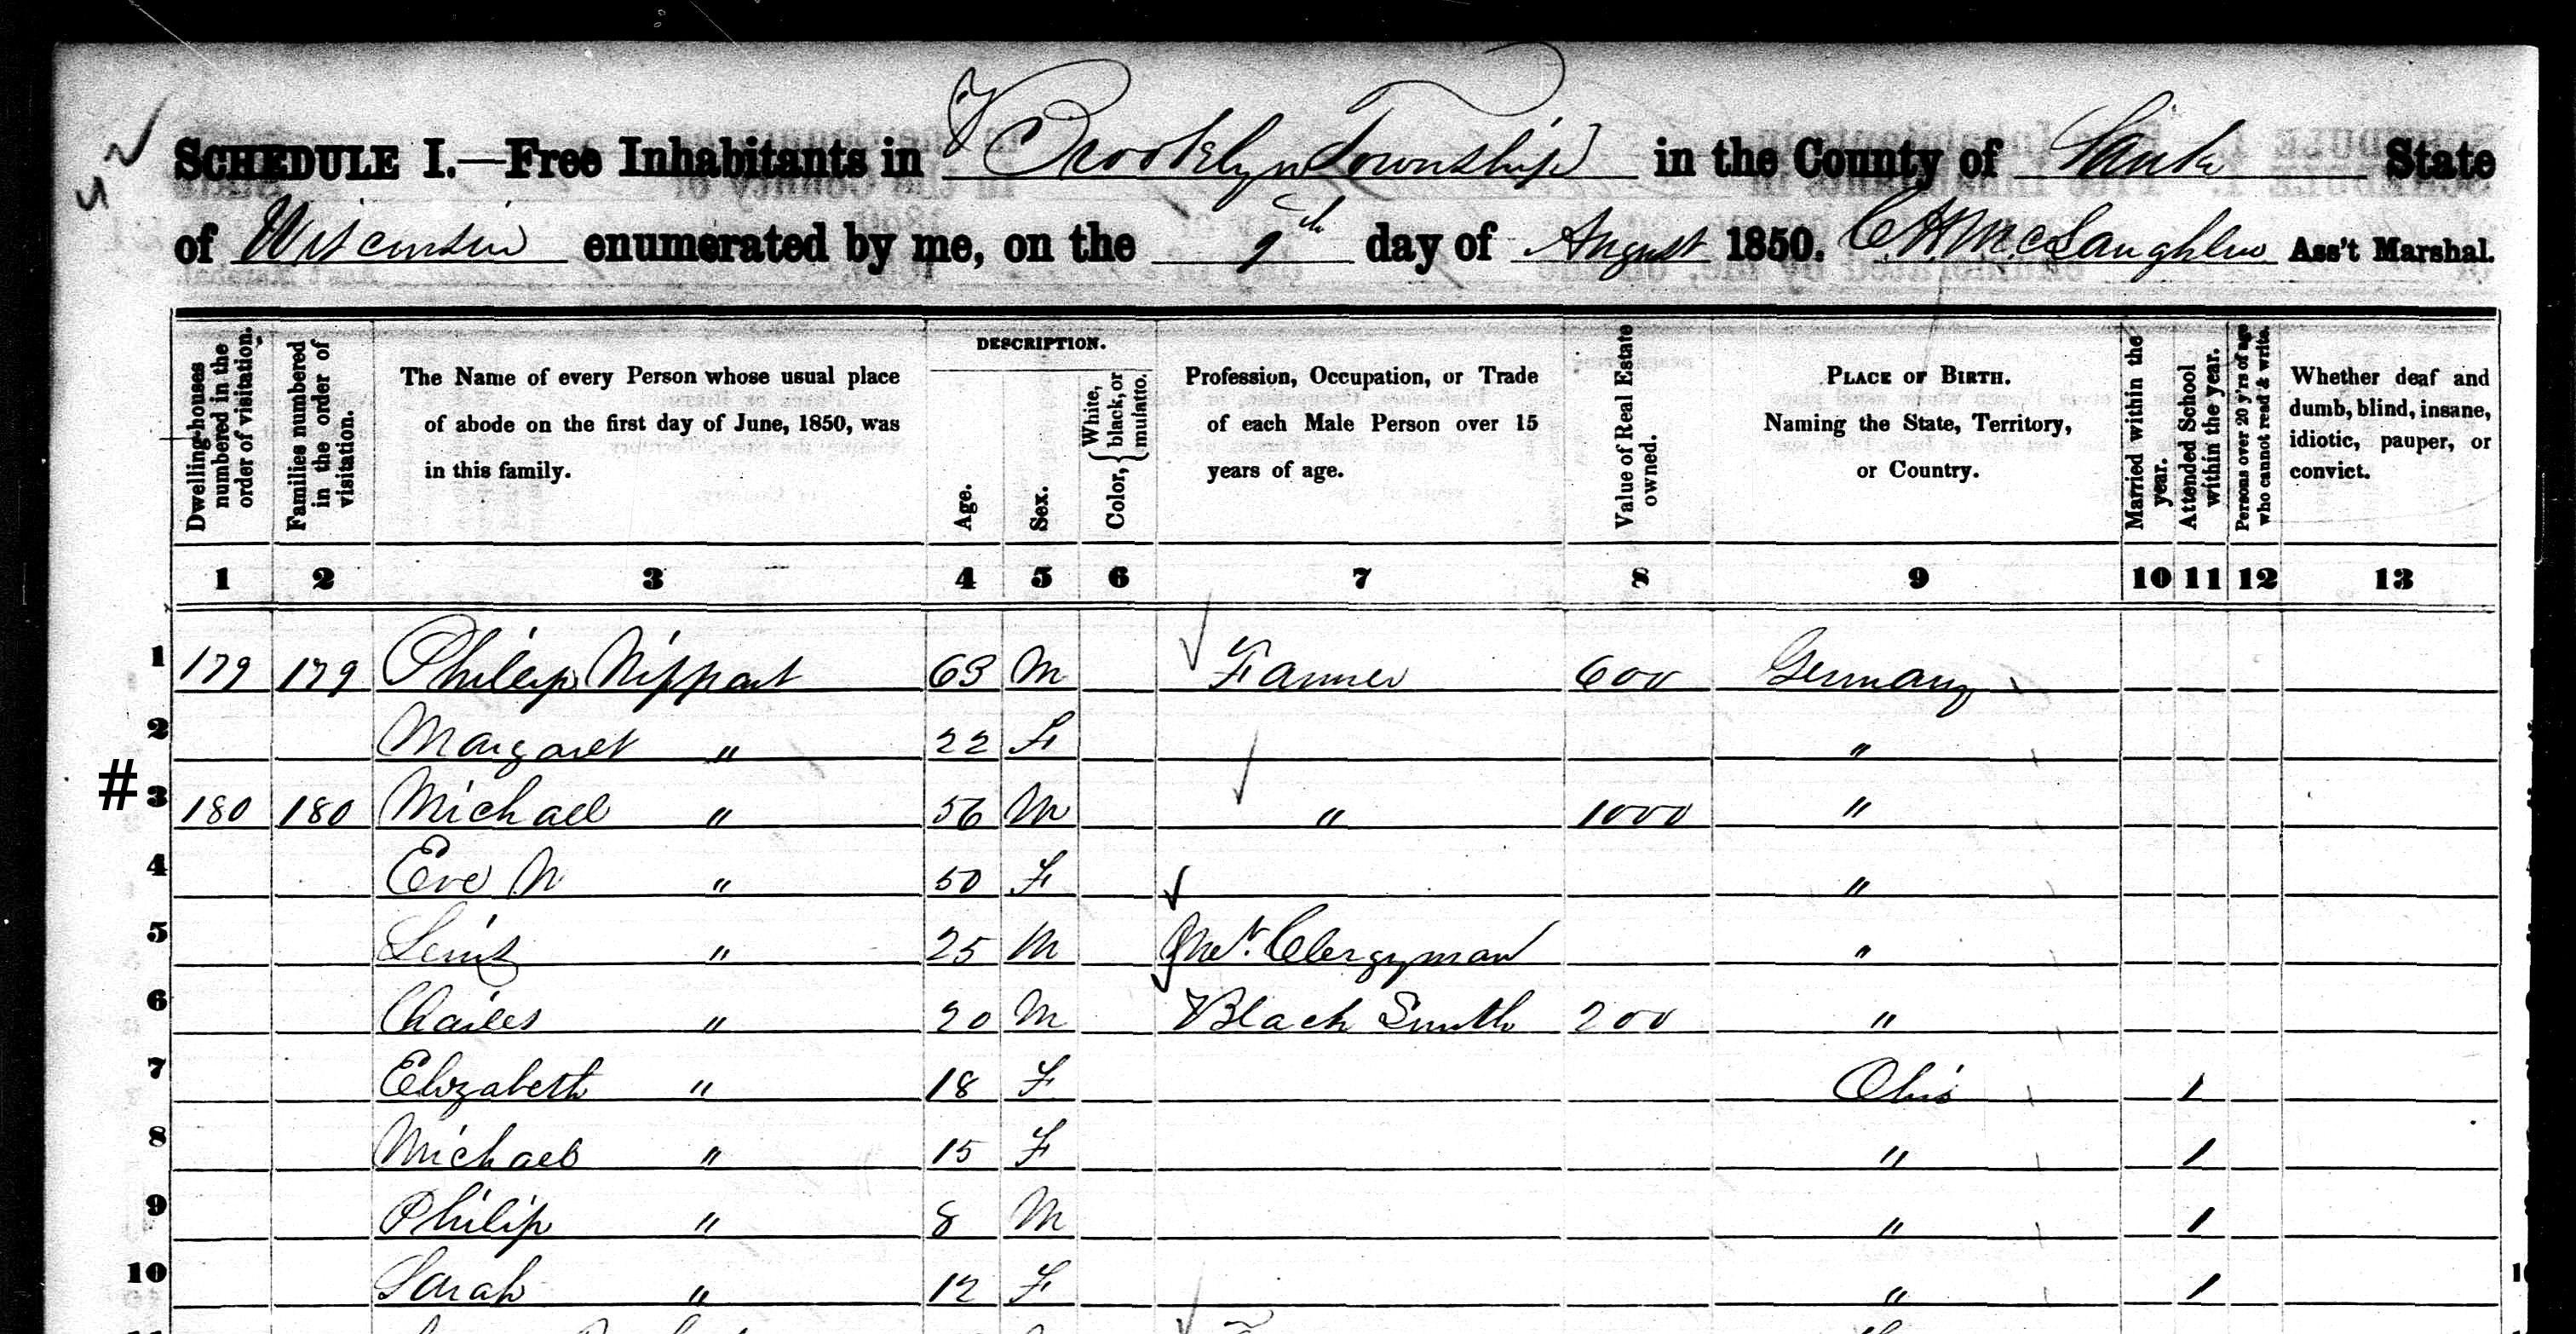 SCHEDULE I.—Free Inhabitants in Brooklyn Township in the County of Sauk State
of Wisconsin enumerated by me, on the 9th day of August 1850. C.H. McLaughlin Ass't Marshal.
Dwelling-houses numbered in the order of visitation.
Families numbered in the order of visitation.
The Name of every Person whose usual place
of abode on the first day of June, 1850, was
in this family.
DESCRIPTION.
Age.
Sex.
Color, { White, black, or mulatto.
Profession, Occupation, or Trade
of each Male Person over 15
years of age.
Value of Real Estate owned.
PLACE OF BIRTH.
Naming the State, Territory,
or Country.
Married within the year.
Attended School within the year.
Persons over 20 y'rs of age who cannot read & write.
Whether deaf and
dumb, blind, insane,
idiotic, pauper, or
convict.
1 2 3 4 5 6 7 8 9 10 11 12 13
1 179 179 Philip Nippart 63 M Farmer 600 Germany
2 Margaret " 22 F "
# 3 180 180 Michael " 56 M " 1000 "
4 Eve " 50 F "
5 Lewis " 25 M Clergyman "
6 Charles " 20 M Black Smith 200 "
7 Elizabeth " 18 F Ohio 1
8 Michael " 15 F " 1
9 Philip " 8 M " 1
10 Sarah " 12 F " 1